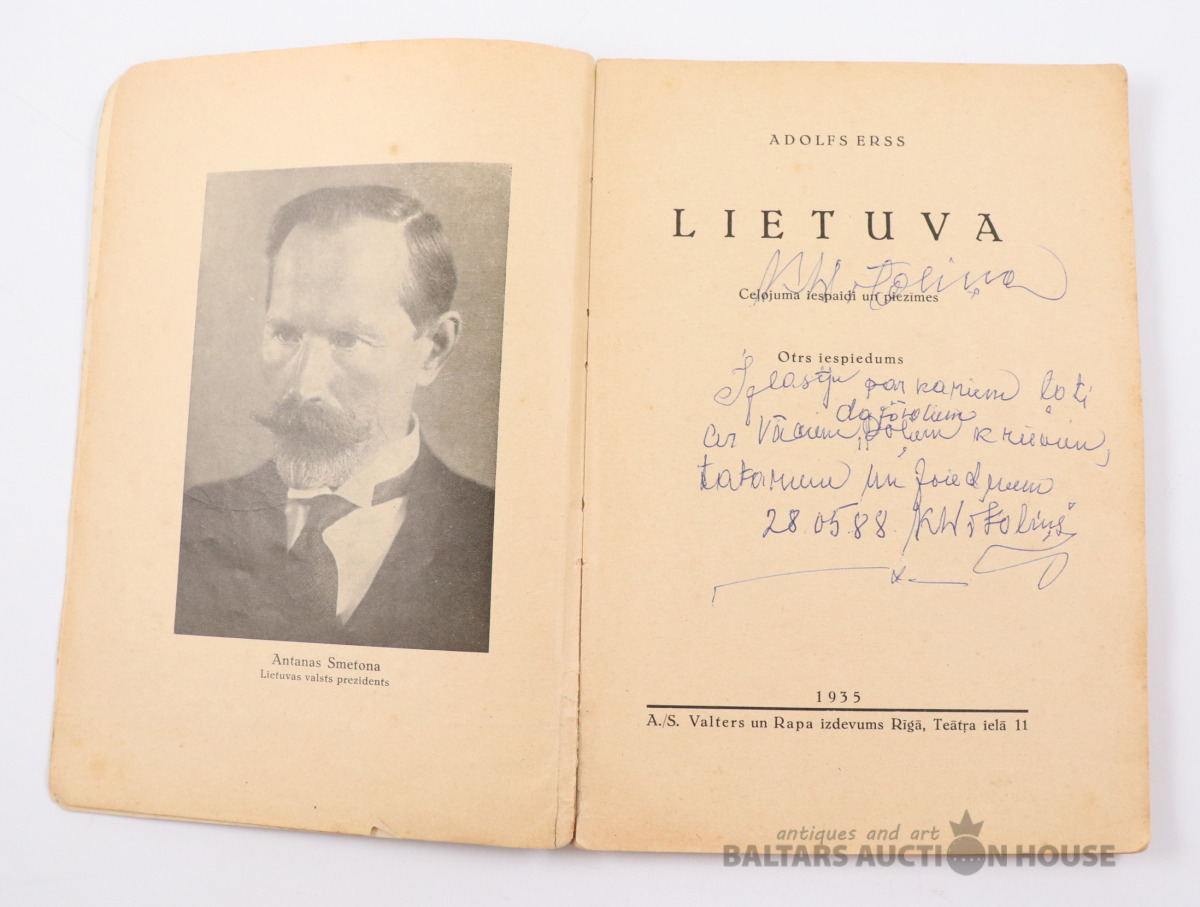 Antanas Smetona
Lietuvas valsts prezidents
ADOLFS ERSS
LIETUVA
Ceļojuma iespaidi un piezīmes
Otrs iespiedums
par kariem ļoti
ar Vāciem, krieviem,
un
28.05.88.
1935
A./S. Valters un Rapa izdevums Rīgā, Teātŗa ielā 11
antiques and art
BALTARS AUCTION HOUSE